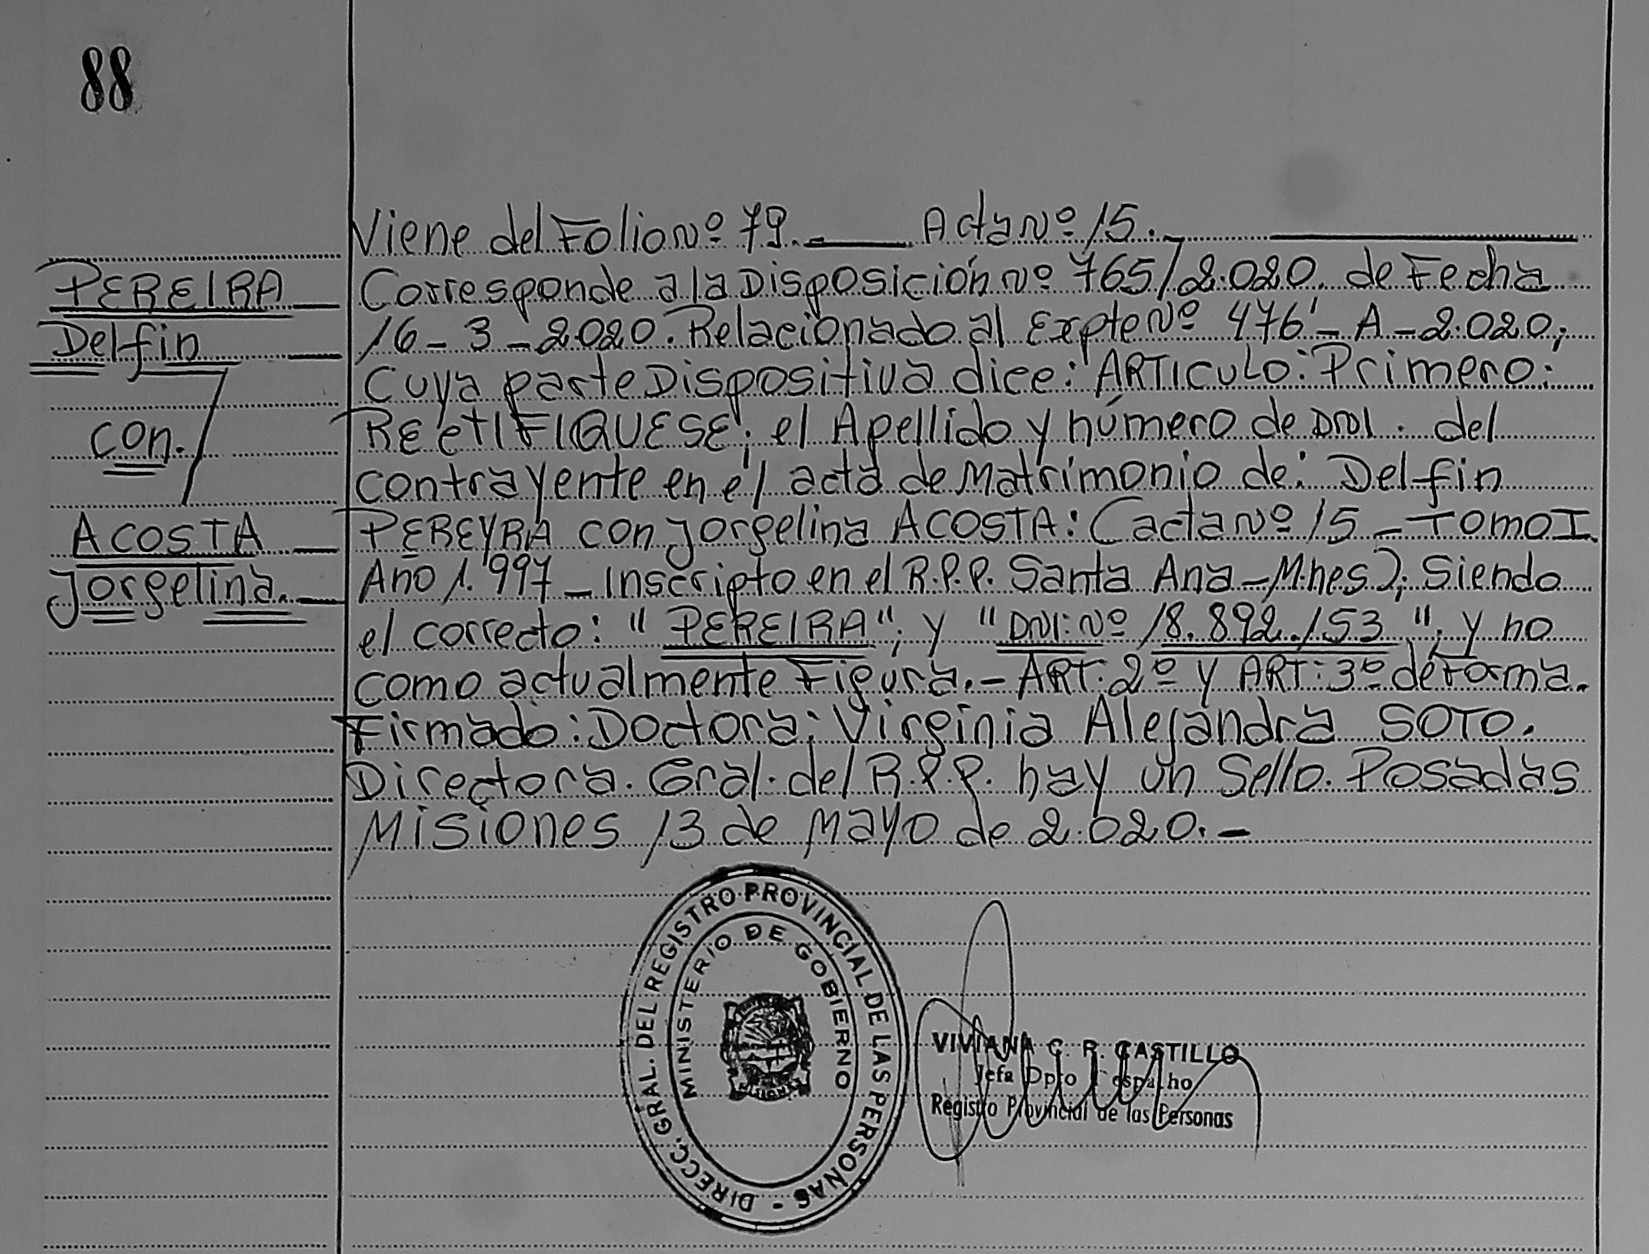 88
Viene del Folio Nº 79.- Acta Nº 15.-
PEREIRA
Delfin
con.
ACOSTA
Jorgelina.
Corresponde a la Disposición Nº 765/2.020. de Fecha
16-3-2.020. Relacionado al Expte Nº 476-A-2.020;
Cuya parte Dispositiva dice: ARTICULO: Primero:
REctIFIQUESE; el Apellido y número de DNI. del
contrayente en el acta de Matrimonio de: Delfin
PEREYRA con Jorgelina ACOSTA: (acta Nº 15-Tomo I.
Año 1.997-Inscripto en el R.P.P. Santa Ana-Mnes.); Siendo
el correcto: "PEREIRA"; y "DNI: Nº 18.892.153"; y no
como actualmente Figura.- ART: 2º y ART: 3º de Forma.
Firmado: Doctora; Virginia Alejandra SOTO.
Directora. Gral. del R.P.P. hay un Sello. Posadas
Misiones 13 de Mayo de 2.020.-
DIRECC. GRAL. DEL REGISTRO PROVINCIAL DE LAS PERSONAS -
MINISTERIO DE GOBIERNO
VIVIANA C. R. CASTILLO
Jefa Dpto Despacho
Registro Provincial de las Personas